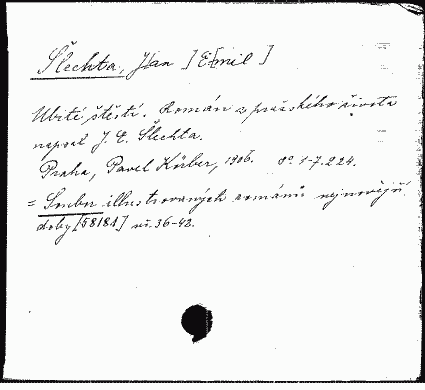 Šlechta, J[an] E[mil]
Ubité štěstí. Román z pražského života
napsal J. E. Šlechta.
Praha, Pavel Körber, 1906. 8° 1-7. 224.
= Sbírka illustrovaných románů nejnovější
doby [58181] sv. 36-42.